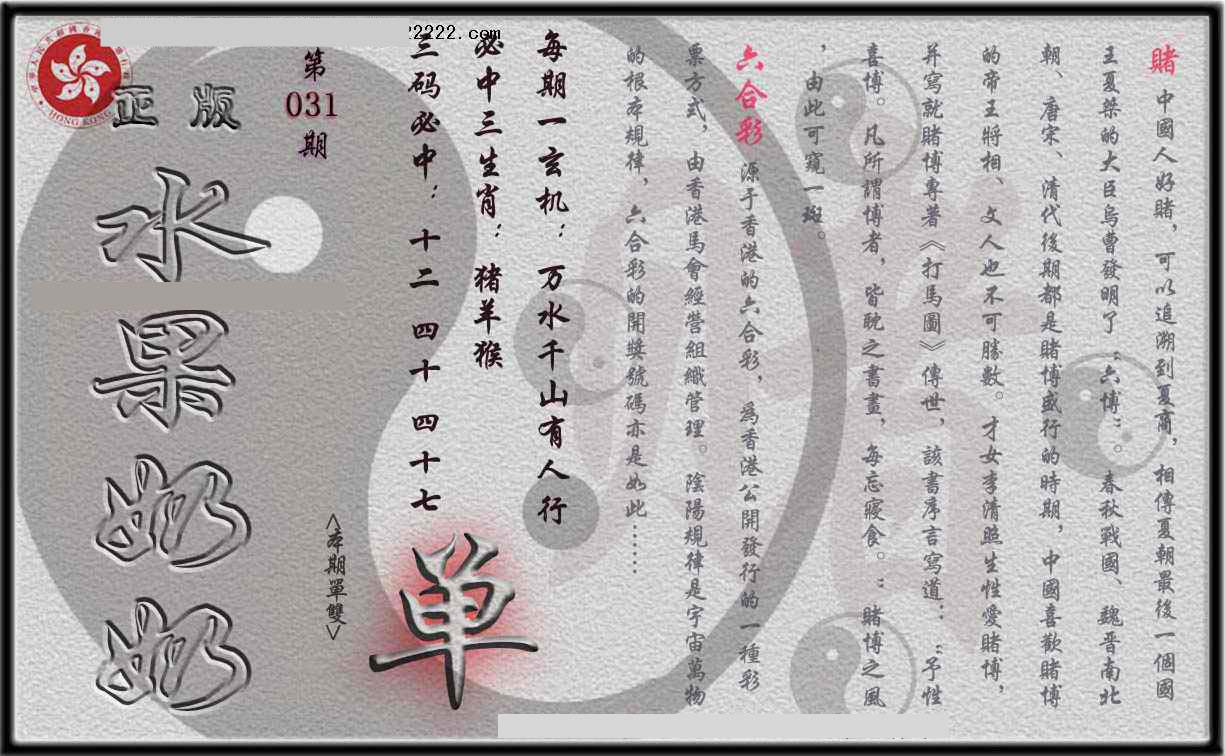 賭 中國人好賭，可以追溯到夏商，相傳夏朝最後一個國
王夏桀的大臣烏曹發明了“六博”。春秋戰國、魏晋南北
朝、唐宋、清代後期都是賭博盛行的時期，中國喜歡賭博
的帝王將相、文人也不可勝數。才女李清照生性愛賭博，
并寫就賭博專著《打馬圖》傳世，該書序言寫道：“予性
喜博。凡所謂博者，皆耽之書畫，每忘寢食。”賭博之風
，由此可窺一斑。
六合彩 源于香港的六合彩，為香港公開發行的一種彩
票方式，由香港馬會經營組織管理。陰陽規律是宇宙萬物
的根本規律，六合彩的開獎號碼亦是如此……
每期一玄机：万水千山有人行
必中三生肖：猪羊猴
三码必中：十二 四十 四十七
单
<本期單雙>
第
031
期
正版
水果奶奶
HONG KONG
2222.com